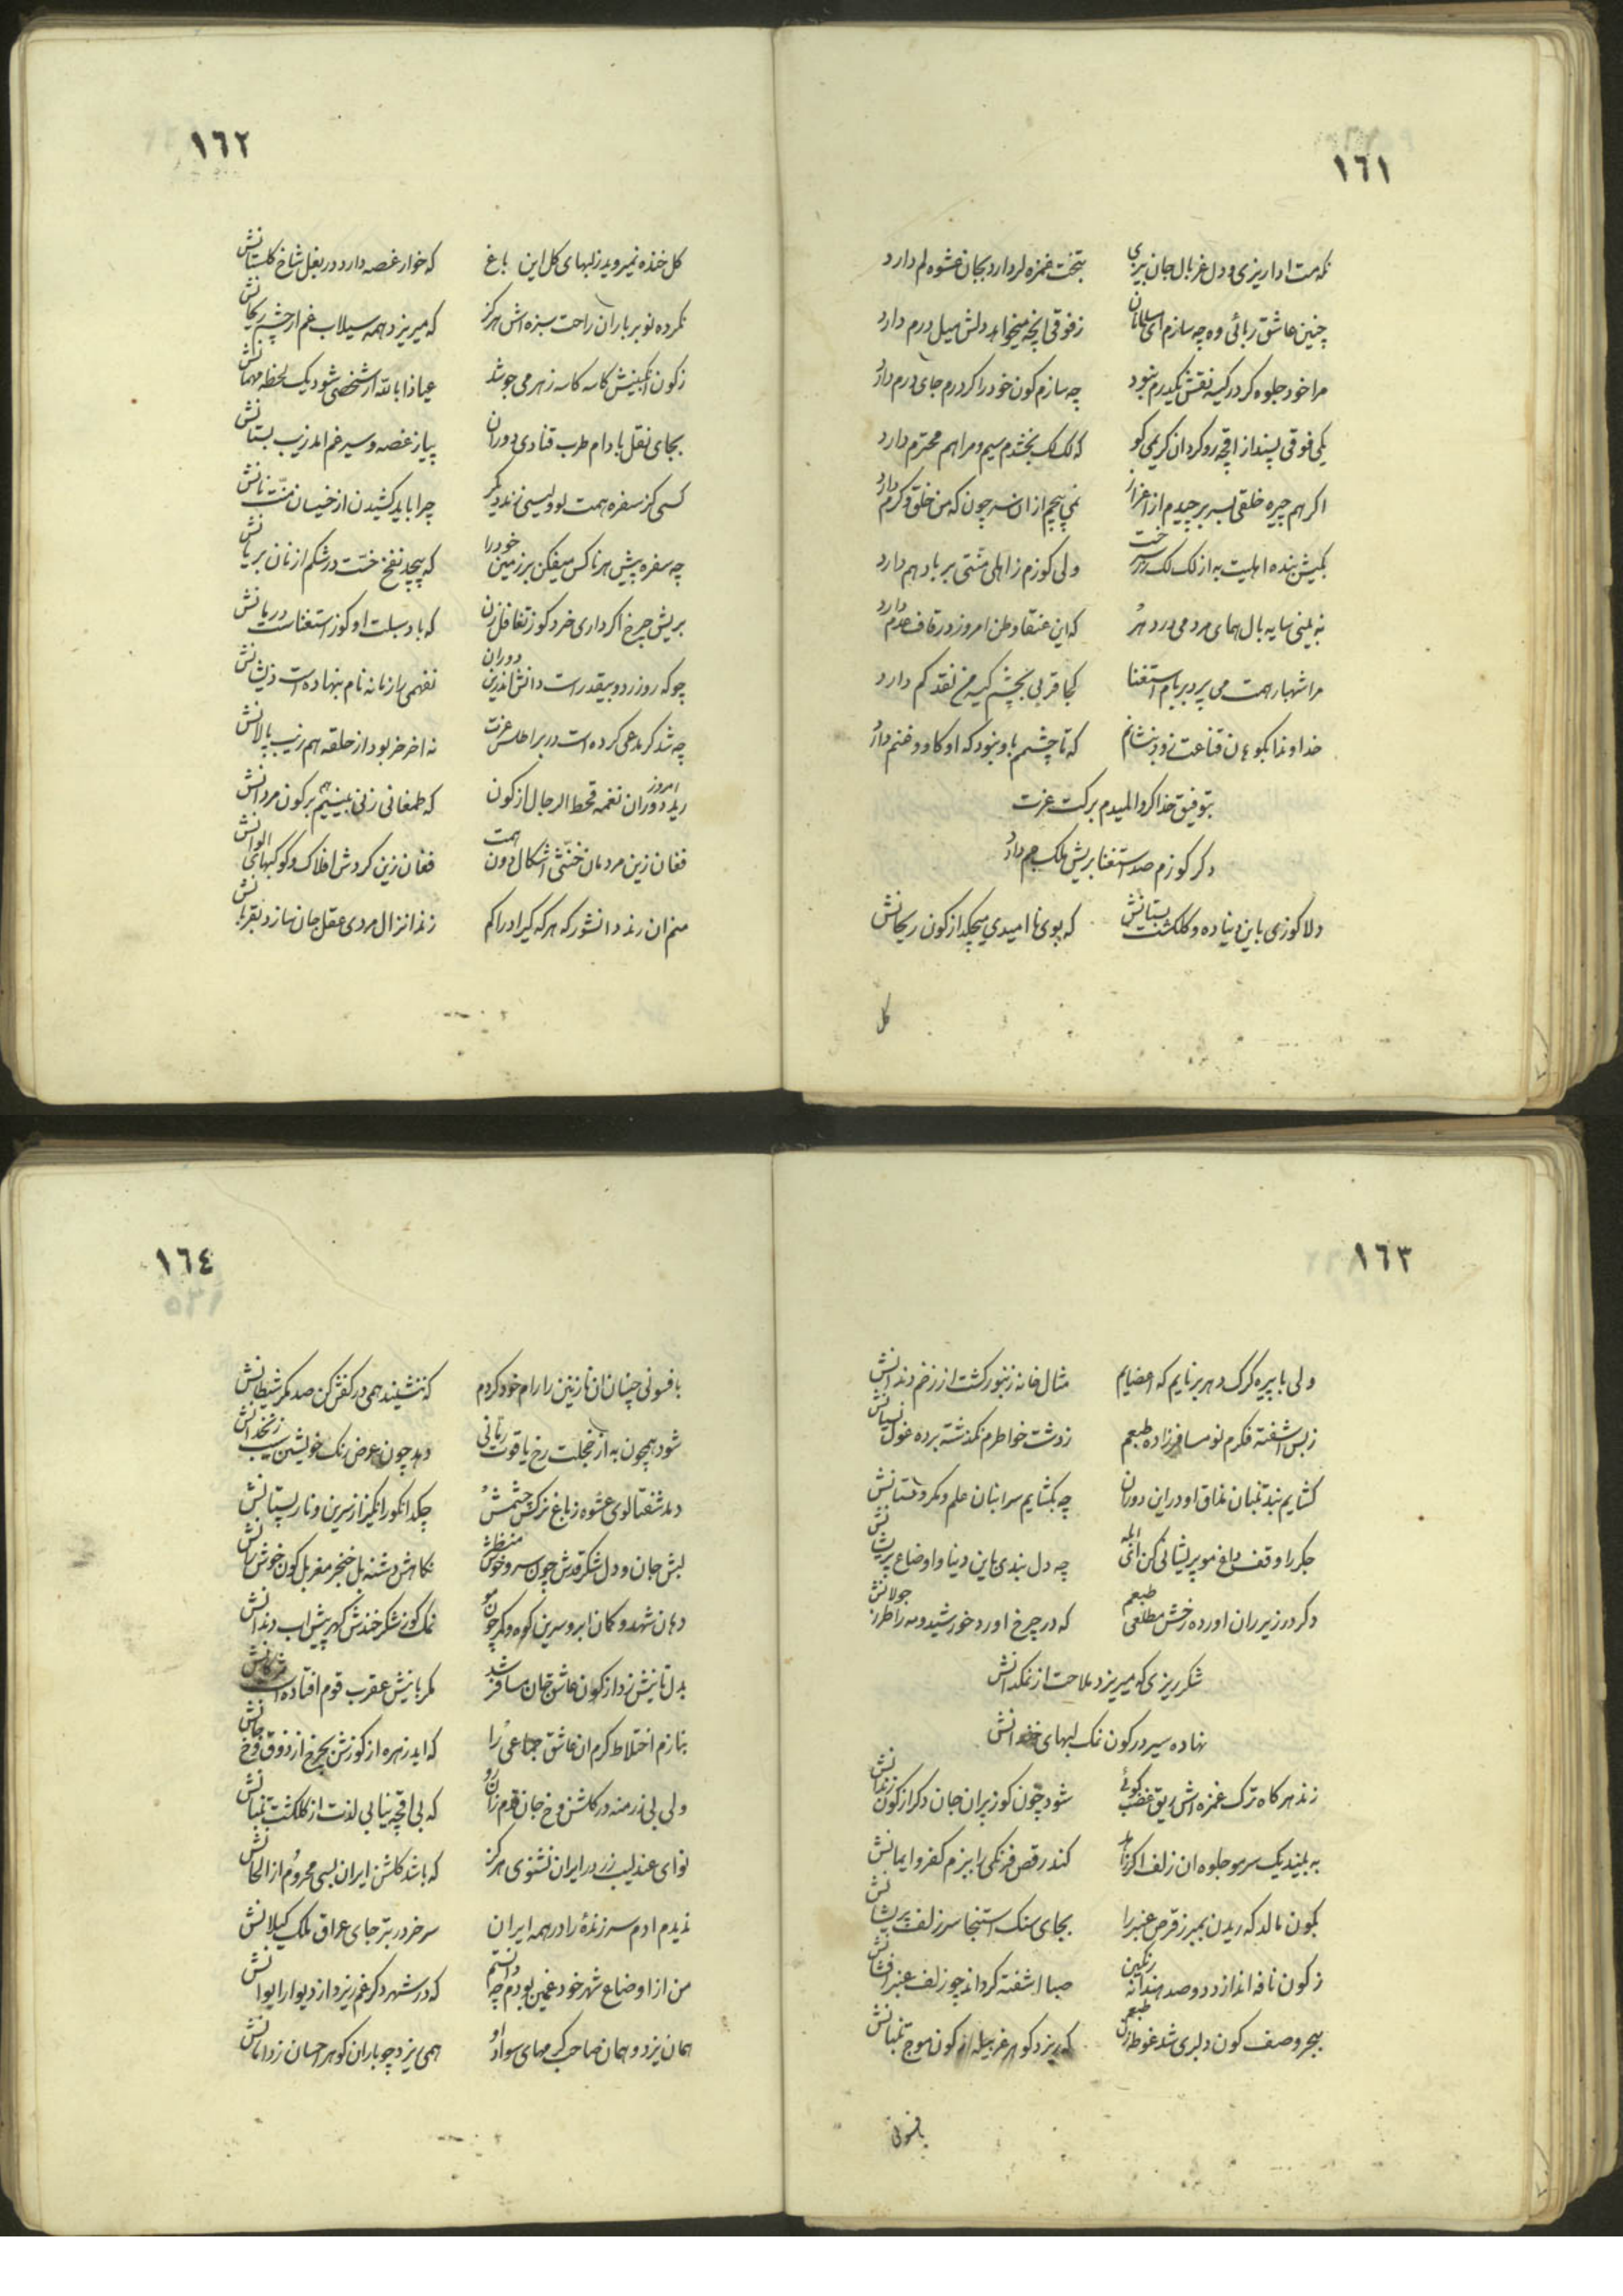 ١٦١
نکه مست ادا ریزی و دل غربال جان بیزی بتخت غمزه لر دارد بجان عشوه لم دارد
چنین عاشق ربائی وه چه سازم ای مسلمانان ز فوقی انچه میخواهد دلش میل درم دارد
مرا خود جلوه کر در کیسه نقش یکدرم نبود چه سازم کون خود را کر درم جای درم دارد
یکی فوقی پسند از اقچه رو کردان کریمی کو که لک لک بخشدم سیم و مرا هم محترم دارد
اکر هم چیره خلقی بسر بر چیدم از اعزاز نمی پیچم از ان سر چون که من خلق و کرم دارد
بکیش بنده اهلیت به از لک لک زر سخت ولی کوزم ز اهلی منتی بر باد هم دارد
نه بینی سایه بال همای مردمی در دهر که این عنقا وطن امروز در قاف عدم دارد
مرا شهباز همت می پرد بر بام استغنا کجا قربی بچشم کیسه من نقد کم دارد
خداوندا بکوه ان قناعت زود بنشانم که تا چشمم باو نبود که او کاو و غنم دارد
بتوفیق خدا کر والمیدم بر کت عزت
دکر کوزم صد استغنا بریش ملک جم دارد
دلا کوزی باین دنیا ده و کلکشت بستانش که بوی نا امیدی میچکد از کون ریحانش
کل
١٦٢
کل خنده نمیروید ز لبهای کل این باغ که خوار غصه دارد در بغل شاخ کلستانش
نکرده نوبر باران راحت سبزه اش هرکز که میریزد همه سیلاب غم از چشم ریحانش
ز کون انکبینش کاسه کاسه زهر می جوشد عیاذا بالله ار شخصی شود یک لحظه مهمانش
بجای نقل بادام طرب قنادی دوران پیاز غصه و سیر غم امد زیب بستانش
کسی کز سفره همت لوولیسی نزند دیکر چرا باید کشیدن از خسیسان منت نانش
چه سفره پیش هر ناکس میفکن بر زمین خود را که پیچد نفخ خست در شکم از نان بریانش
بریش چرخ اکر داری خرد کوز تغافل زن که باد سبلت او کوز استغناست دربانش
چو که روز زر دو بیقدر است دانش اندرین دوران نفهمی را زمانه نام بنهاده است ذیشانش
چه شد کر مدعی کرده است در بر اطلس عزت نه اخر خر بود از حلقه هم زیب پالانش
رید دوران نغمه قحط الرجال از کون امروز که طمغانی زنی بینیم هم بر کون مردانش
فغان زین مردمان خنثی اشکال دون همت فغان زین کردش افلاک و کوکبهای الوانش
منم ان رند دانشور که هر که کیر ادراکم زند انزال مردی عقل جان سازد بقربانش
١٦٣
ولی با پیره کرک دهر بر نایم که اعضایم مثال خانه زنبور کشت از زخم دندانش
ز بس اشفته فکرم نو مسافر زاده طبعم ز دشت خواطرم نکذشته برده غول نسیانش
کشایم بند تنبان مذاق او در این دوران چه بکشایم سر انبان علم و مکر و دستانش
جکر را وقف داغ مو پریشانی کن ای چه دل بندی باین دنیا و اوضاع پریشانش
دکر در زیر ران اورده رخش مطلعی طبعم که در چرخ اورد خورشید و مه را طرز جولانش
شکر ریزی که میریزد ملاحت از نمکدانش
نهاده سیر در کون نمک لبهای خندانش
زند هر کاه ترک غمزه اش بق غضب کوئی شود چون کوز پران جان دکر از کون زندانش
به بیند یک سر مو جلوه ان زلف اکر زاهد کند رقص فرنکی را ببزم کفر و ایمانش
بکون مالد که ریدن بمبرز قرص عنبر را بجای سنک استنجا سر زلف پریشانش
ز کون نافه اندازد دو صد هندانه رنکین صبا اشفته کرداند چو زلف عنبر افشانش
ببحر وصف کون دلبری شد غوطه زن طبعم که ریزد کوهر غربیله از کون موج تنبانش
بافسونی
١٦٤
بافسونی چنان ان نازنین را رام خود کردم که ننشیند همی در کفش کن صد مکر شیطانش
شود همچون به از خجلت رخ یاقوت رمانی دهد چون عوض رنک خویشتن سیب زنخدانش
دمد شفتالوی عشوه ز باغ نرکس چشمش چکد انکور انکیز از سرین و نار پستانش
لبش جان و دل شکر قدش چون سرو خوش منظر نکاهش دشنه بل خنجر مغربل کون خوش رانش
دهان شهد و کمان ابرو سرین کوه و کمر چون مو نمک کوز شکر خندش کهر پیش اب دندانش
بدل تا نیش زد از کون عاشق جان مسافر شد مکر با نیش عقرب قوم افتاده است مژکانش
بنازم اختلاط کرم ان عاشق جماعی را که اید زهره از کوزش بچرخ از ذوق فخ جانش
ولی بی زر منه در کلشن فخ جان قدم زان رو که بی اقچه نیابی لذت از کلکشت تنبانش
نوای عندلیب زر در ایران نشنوی هرکز که باشد کلشن ایران بسی محروم از الحانش
ندیدم ادم سر زندهٔ را در همه ایران سر خر در بتر جای عراق ملک کیلانش
من از اوضاع شهر خود غمین بودم چه دانستم که در شهر دکر غم ریزد از دیوار ایوانش
همان یزد و همان صاحب کرمهای سواد او همی یزد چو باران کوهر احسان ز دامانش